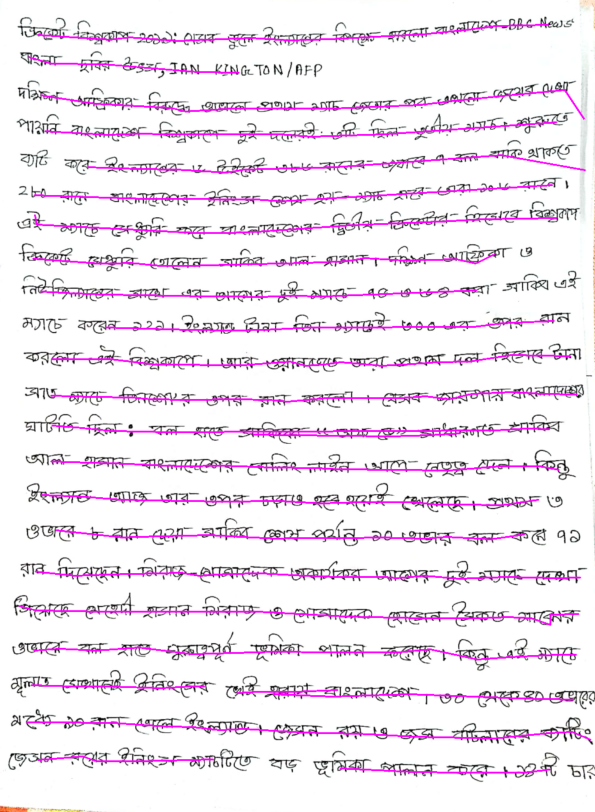 ক্রিকেট বিশ্বকাপ ২০১৯: যেসব ভুলে ইংল্যান্ডের বিপক্ষে হারলো বাংলাদেশ-BBC News
বাংলা ছবির উৎস, IAN KINGTON/AFP
দক্ষিণ আফ্রিকার বিরুদ্ধে প্রথম ম্যাচ জেতার পর এখনো জয়ের দেখা
পায়নি বাংলাদেশ বিশ্বকাপে দুই দলেরই এটি ছিল তৃতীয় ম্যাচ। শুরুতে
ব্যাট করে ইংল্যান্ডের ৬ উইকেটে ৩৮৬ রানের জবাবে ৭ বল বাকি থাকতে
২৮০ রানে বাংলাদেশের ইনিংস শেষ হয় ম্যাচ হারে তারা ১০৬ রানে।
এই ম্যাচে সেঞ্চুরি করে বাংলাদেশের দ্বিতীয় ক্রিকেটার হিসেবে বিশ্বকাপ
ক্রিকেটে সেঞ্চুরি পেলেন সাকিব আল হাসান। দক্ষিণ আফ্রিকা ও
নিউজিল্যান্ডের সাথে এর আগের দুই ম্যাচে ৭৫ ও ৬৪ করা সাকিব এই
ম্যাচে করেন ১২১। ইংল্যান্ড টানা তিন ম্যাচেই ৩০০ এর ওপর রান
করলো এই বিশ্বকাপে। আর ওয়ানডেতে তারা প্রথম দল হিসেবে টানা
সাত ম্যাচে তিনশো'র ওপর রান করলো। যেসব জায়গায় বাংলাদেশের
ঘাটতি ছিল: বল হাতে সাকিবের "অফ ডে" সাধারণত সাকিব
আল হাসান বাংলাদেশের বোলিং লাইন আপে নেতৃত্ব দেন। কিন্তু
ইংল্যান্ড আজ তার ওপর চড়াও হবে হয়েই খেলেছে। প্রথম ৩
ওভারে ৮ রান দেয়া সাকিব শেষ পর্যন্ত ১০ ওভার বল করে ৭১
রান দিয়েছেন। মিরাজ-মোসাদ্দেক অকার্যকর আগের দুই ম্যাচে দেখা
গিয়েছে মেহেদী হাসান মিরাজ ও মোসাদ্দেক হোসেন সৈকত মাঝের
ওভারে বল হাতে গুরুত্বপূর্ণ ভূমিকা পালন করেছে। কিন্তু এই ম্যাচে
মূলত সেখানেই ইনিংসের খেই হারায় বাংলাদেশ। ৩০ থেকে ৪০ ওভারের
মধ্যে ৯০ রান তোলে ইংল্যান্ড। জেসন রয় ও জস বাটলারের ব্যাটিং
জেসন রয়ের ইনিংস ম্যাচটিতে বড় ভূমিকা পালন করে। ১৪টি চার